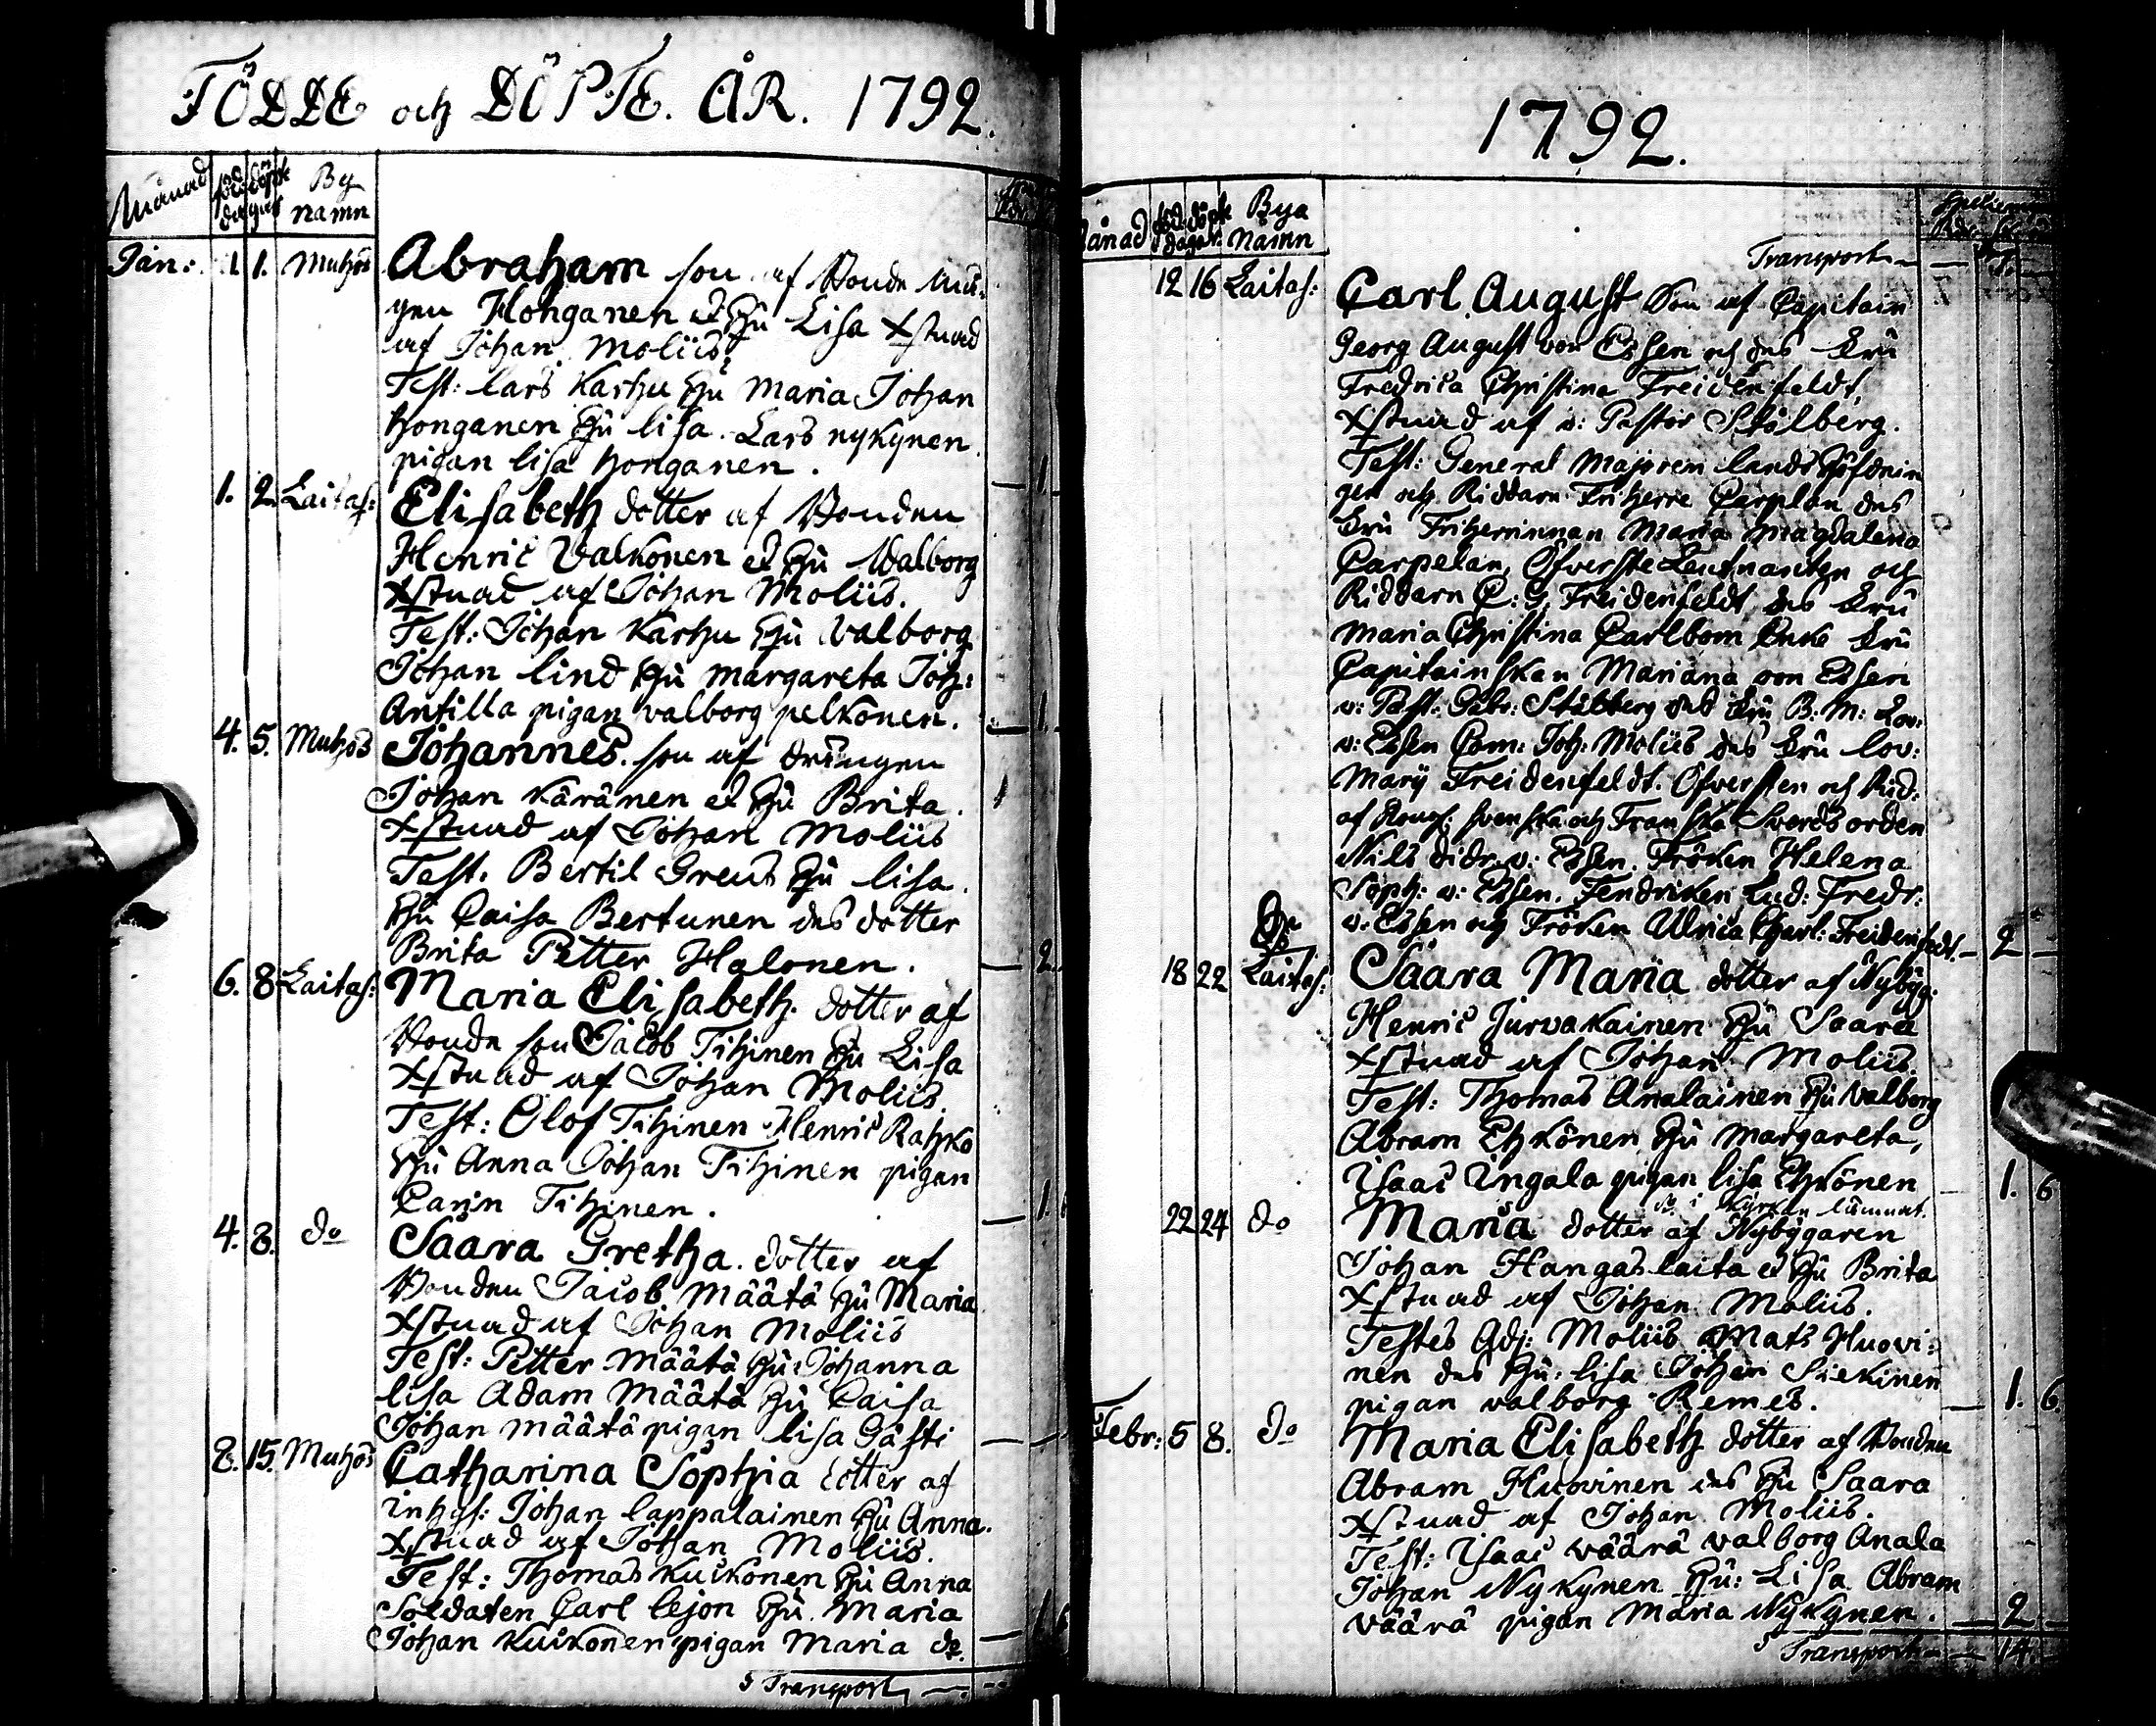 FÖDDE och DÖPTE. ÅR. 1792.
Månad föd. döpte dagar By namn
Jan: 1. 1. Muhos Abraham son af Bonde
Honganen et Hu Lisa Xstnad
af Johan Moliis
Test: Lars Karhu Hu Maria Johan
Honganen Hu Lisa. Lars nykynen
pigan Lisa honganen. 1
1. 2. Laitas: Elisabeth dotter af Bonden
Henric Valkonen et Hu Walborg
Xstnad af Johan Moliis.
Test: Johan Karhu Hu Valborg
Johan Lind Hu Margareta Joh:
Antilla pigan valborg pelkonen. 1.
4. 5. Muhos Johannes. son af drängen
Johan Käränen et Hu Brita.
Xstnad af Johan Moliis
Test. Bertil Greus Hu lisa.
Hu Caisa Bertunen des dotter
Brita Petter Halonen. 2.
6. 8. Laitas: Maria Elisabeth. dotter af
Bonde son Jacob Tihinen Hu Lisa
Xstnad af Johan Moliis
Test: Olof Tihinen Henric Rahko
Hu Anna Johan Tihinen pigan
Carin Tihinen. 1.
4. 8. do Saara Gretha. dotter af
Bonden Jacob Määtä Hu Maria
Xstnad af Johan Moliis
Test: Petter Määtä Hu Johanna
lisa Adam Määtä Hu Caisa
Johan Määtä pigan lisa Gästi
8. 15. Muhos Catharina Sophia dotter af
inhys: Johan lappalainen Hu Anna.
Xstnad af Johan Moliis.
Test: Thomas Kuikonen Hu Anna
Soldaten Carl lejon Hu. Maria
Johan Kuikonen pigan Maria do. 1 6
Transport
1792.
Månad föd. döpte dagar Bya Namn
Transport
12 16 Laitas: Carl August Son af Capitain
Georg August von Essen och des Fru
Fredrica Christina Freidenfeldt,
Xstnad af v: Pastor Stålberg.
Test: General Majoren landshöfdnin
gen och Riddarn Friherre Carplan des
Fru Friherrinnan Maria Magdalena
Carpelan, Öfverste Leutnanten och
Riddarn C: G. Freidenfeldt des Fru
Maria Christina Carlbom Enke Fru
Capitainskan Mariana von Essen
v: Past: Gabr: Stålberg des Fru B: M: Lov:
v: Essen Com: Joh: Moliis des Fru lov:
Mary Freidenfeldt. Öfversten och Rid:
af Kongl: svenska och Franska Swerds orden
Nils didr: v: Essen. Fröken Helena
Soph: v: Essen. Fendriken Lud: Fredr:
v: Essen och Fröken Ulrica Charl: Freidenfedt. 2
18 22 Laitas: Saara Maria dotter af Nybyg:
Henric Jurvakainen Hu Saara
Xstnad af Johan Moliis.
Test: Thomas Analainen Hu Valborg
Abram Ehkönen Hu Margareta,
Isaac Ingala pigan lisa Ehkönen 1. 6
i Kyrkan lämnat.
22 24 do Maria dotter af Nybygaren
Johan Hangaslaita et Hu Brita
Xstnad af Johan Moliis.
Testes Adj: Moliis Mats Huovi:
nen des Hu: lisa Johan Siekinen
pigan valborg Remes. 1. 6.
Febr: 5 8. do Maria Elisabeth dotter af Bonden
Abram Huovinen des Hu Saara
Xstnad af Johan Moliis.
Test: Isaac väärä valborg Anala
Johan Nykynen Hu: Lisa Abram
väärä pigan Maria Nykynen. 2
Transport 14